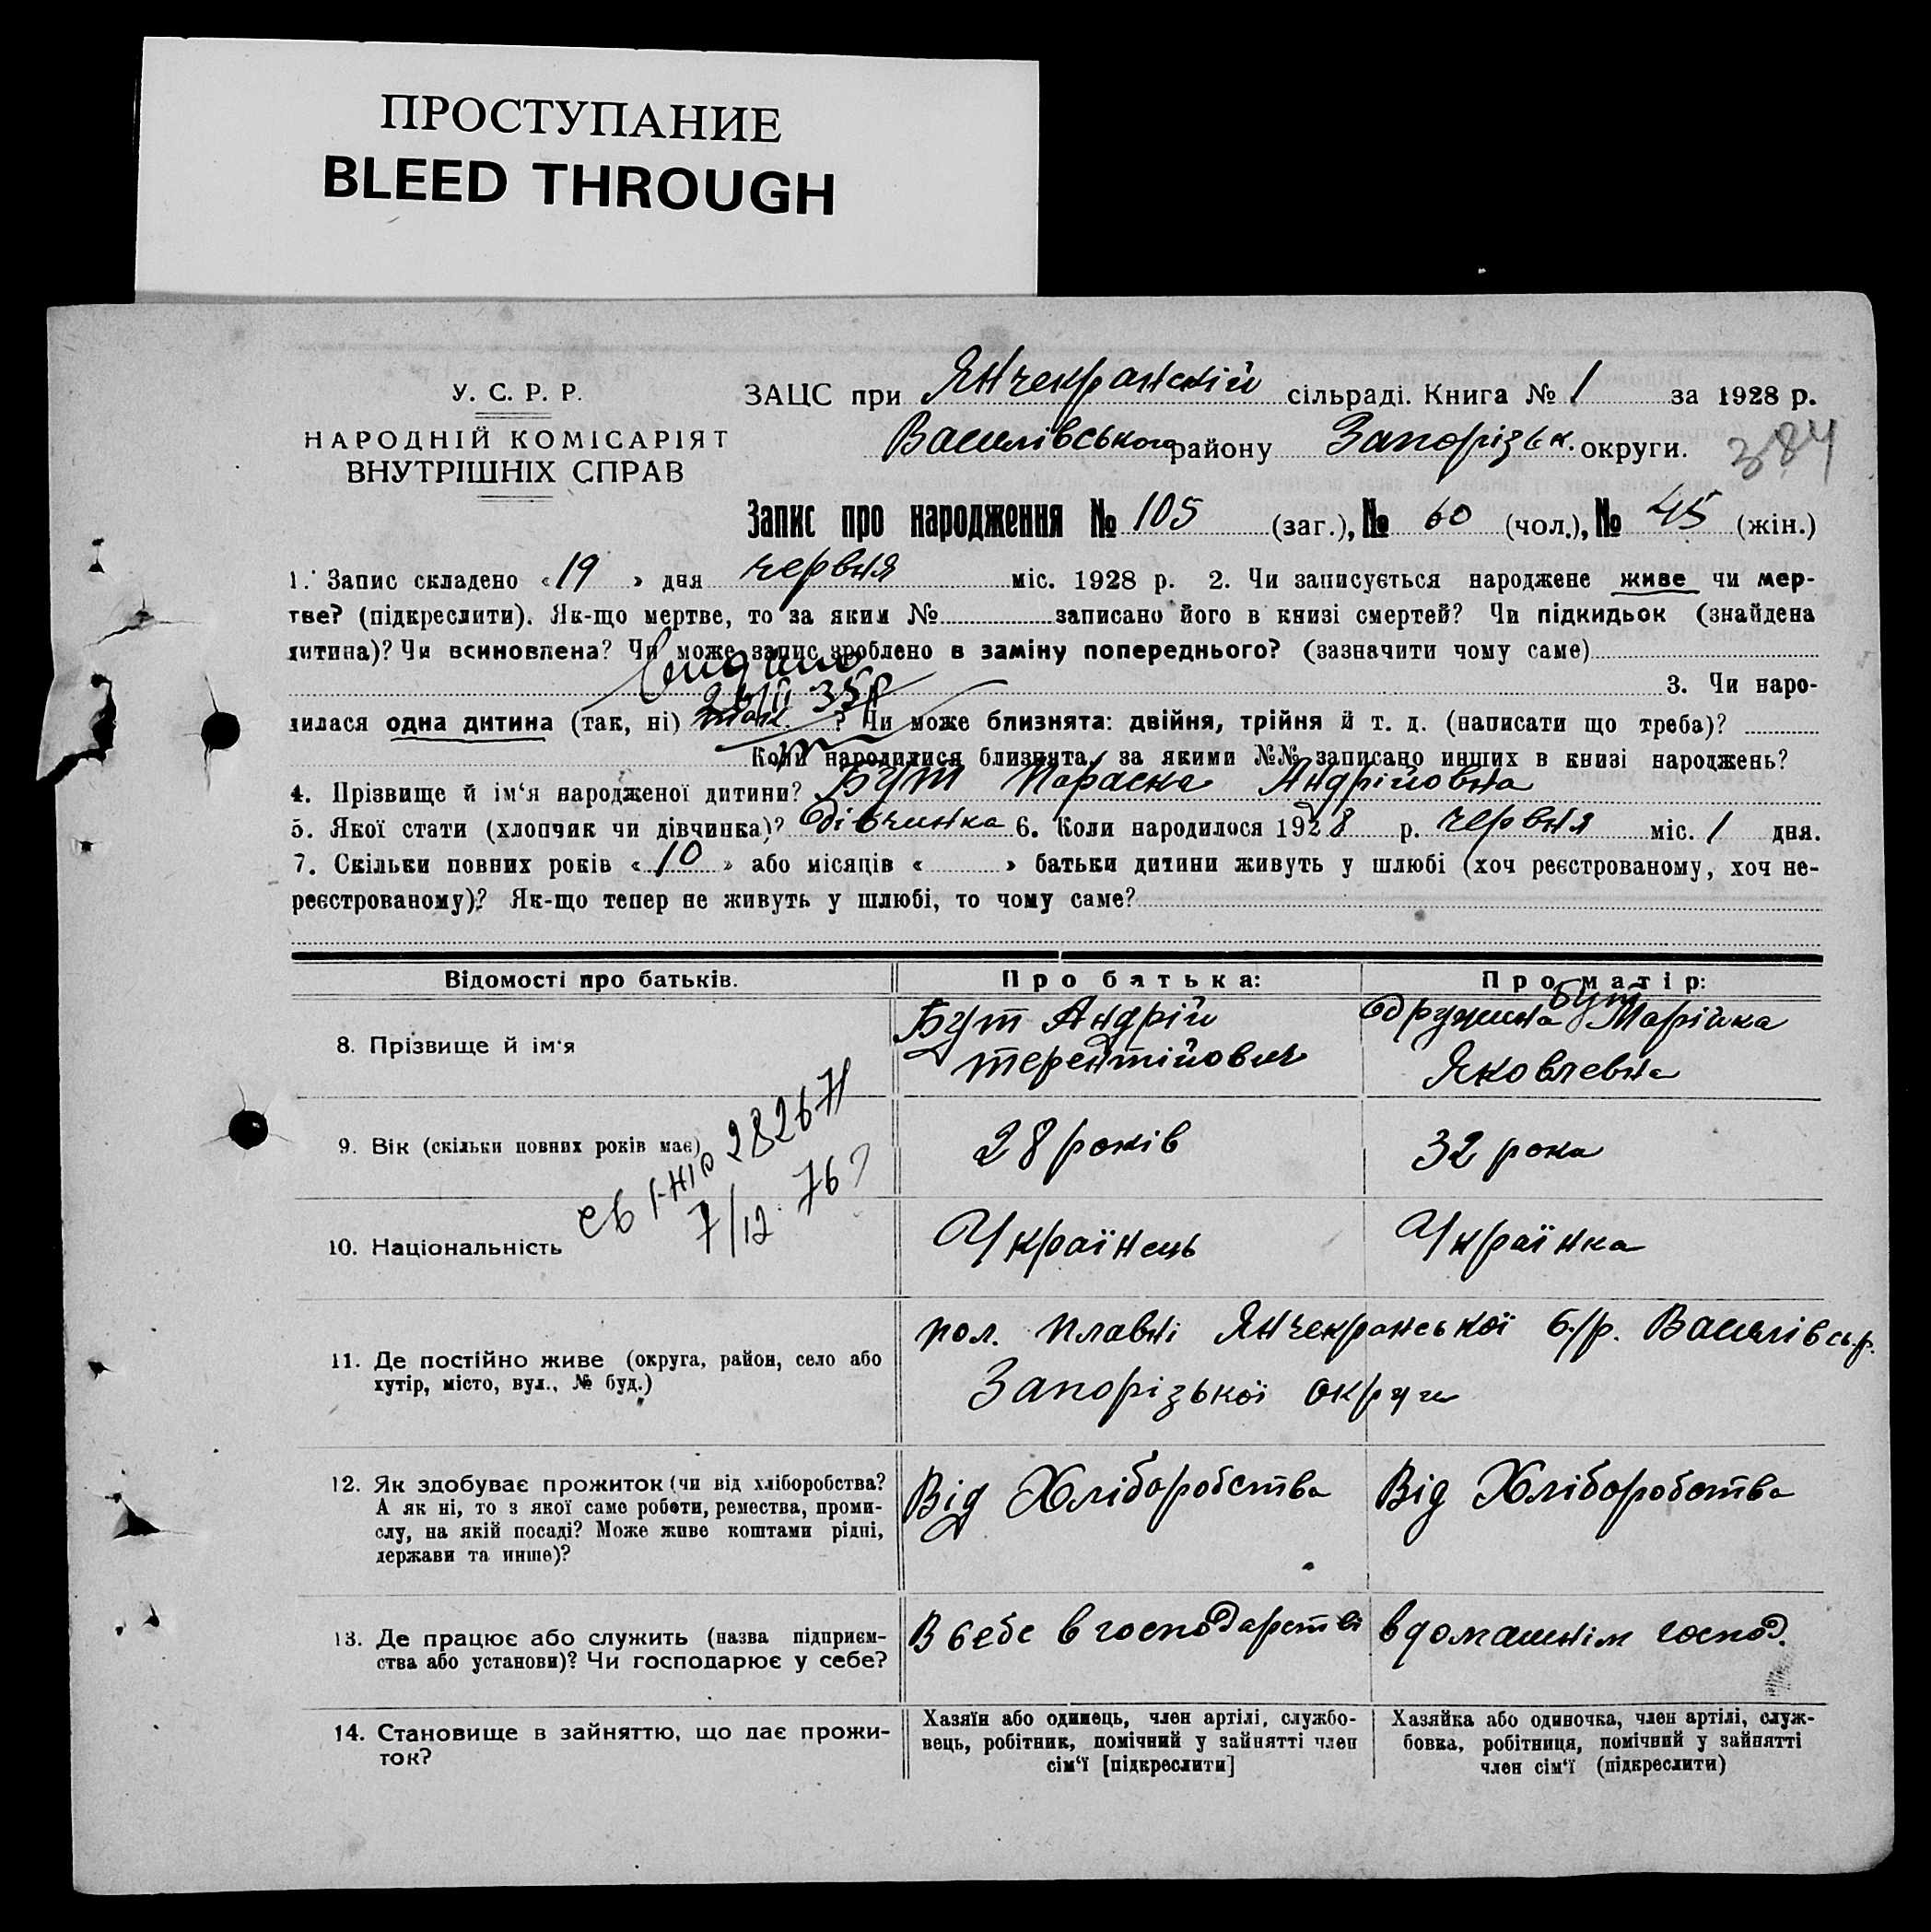 ПРОСТУПАНИЕ
BLEED THROUGH
У. С. Р. Р.
НАРОДНІЙ КОМІСАРІЯТ
ВНУТРІШНІХ СПРАВ
ЗАЦС при Янчекранскій сільраді. Книга № 1 за 1928 р.
Василівського району Запорізьк. округи.
384
Запис про народження № 105 (заг.), № 60 (чол.), № 45 (жін.)
1. Запис складено «19» дня червня міс. 1928 р. 2. Чи записується народжене живе чи мер-
тве? (підкреслити). Як-що мертве, то за яким № записано його в книзі смертей? Чи підкидьок (знайдена
дитина)? Чи всиновлена? Чи може запис зроблено в заміну попереднього? (зазначити чому саме)
3. Чи наро-
дилася одна дитина (так, ні) так ? Чи може близнята: двійня, трійня й т. д. (написати що треба)?
Коли народилися близнята, за якими №№ записано инших в книзі народжень?
4. Прізвище й ім‘я народженої дитини? Бут Параска Андрійовна
5. Якої стати (хлопчик чи дівчинка)? дівчинка 6. Коли народилося 1928 р. червня міс. 1 дня.
7. Скільки повних років «10» або місяців « » батьки дитини живуть у шлюбі (хоч реєстрованому, хоч не-
реєстрованому)? Як-що тепер не живуть у шлюбі, то чому саме?
Відомості про батьків. Про батька: Про матір:
8. Прізвище й ім‘я
Бут Андрій
терентійович
Бут
дружина Марійка
Яковлевна
9. Вік (скільки повних років має)
28 років
32 рока
282671
7/12 76
10. Національність
Українець
Українка
11. Де постійно живе (округа, район, село або
хутір, місто, вул., № буд.)
пол. плавні Янчекранської с/р. Василівсь.р.
Запорізької округи
12. Як здобуває прожиток (чи від хліборобства?
А як ні, то з якої саме роботи, ремества, проми-
слу, на якій посаді? Може живе коштами рідні,
держави та инше)?
Від Хліборобства
Від Хліборобства
13. Де працює або служить (назва підприєм-
ства або установи)? Чи господарює у себе?
В себе в господарстві
в домашнім господ.
14. Становище в зайняттю, що дає прожи-
ток?
Хазяїн або одинець, член артілі, службо-
вець, робітник, помічний у зайнятті член
сім‘ї [підкреслити]
Хазяйка або одиночка, член артілі, служ-
бовка, робітниця, помічний у зайнятті
член сім‘ї (підкреслити)